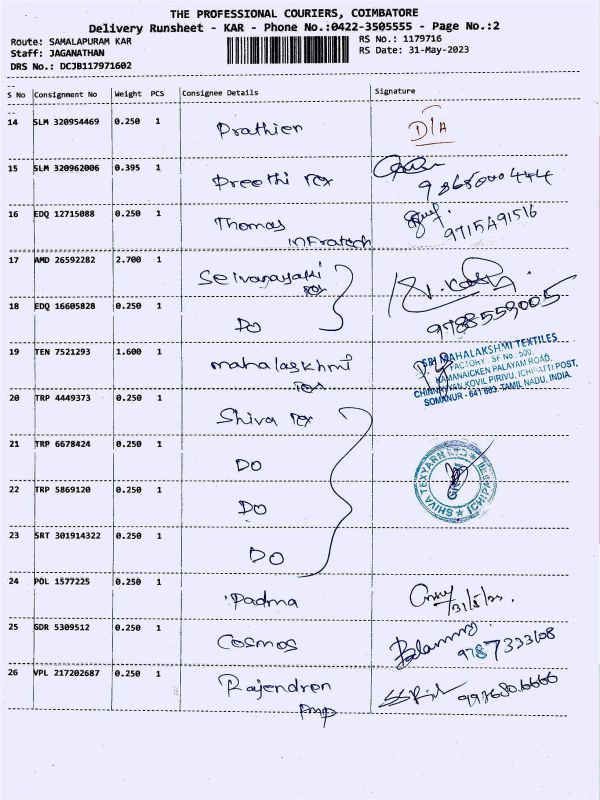 THE PROFESSIONAL COURIERS, COIMBATORE
Delivery Runsheet - KAR - Phone No.:0422-3505555 - Page No.:2
Route: SAMALAPURAM KAR
RS No.: 1179716
Staff: JAGANATHAN
RS Date: 31-May-2023
DRS No.: DCJB117971602
S No Consignment No Weight PCS Consignee Details Signature
14 SLM 320954469 0.250 1 Prathien D/A
15 SLM 320962006 0.395 1 Preethi Tex
16 EDQ 12715088 0.250 1 Thomas
InFratech
9715491516
17 AMD 26592282 2.700 1 Selvanayaki
Tex
18 EDQ 16605828 0.250 1 DO 9788559005
19 TEN 7521293 1.600 1 mahalaskhmi
Tex
SRI MAHALAKSHMI TEXTILES
FACTORY : SF No : 500,
KAMANAICKEN PALAYAM ROAD,
CHINNAYAN KOVIL PIRIVU, ICHIPATTI POST,
SOMANUR - 641 683. TAMIL NADU, INDIA.
20 TRP 4449373 0.250 1 Shiva Tex
21 TRP 6678424 0.250 1 DO
22 TRP 5869120 0.250 1 DO
SHIVA TEXYARN
23 SRT 301914322 0.250 1 DO
24 POL 1577225 0.250 1 Padma
31/5/23.
25 GDR 5309512 0.250 1 Cosmos
9787333108
26 VPL 217202687 0.250 1 Rajendren